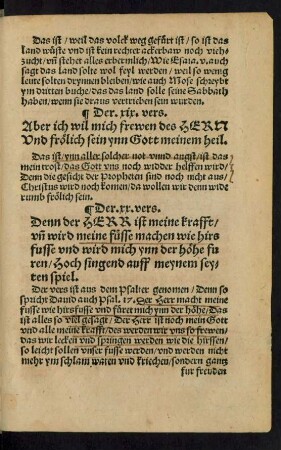 Das ist / weil das volck weg gefürt ist / so ist das
land wüste vnd ist kein rechter ackerbaw noch vieh-
zucht / vñ stehet alles erbermlich / Wie Esaia. v. auch
sagt das land solte wol feyl werden / weil so wenig
leute solten drynnen bleiben / wie auch Mose schreybt
ym dritten buche / das das land solle seine Sabbath
haben / wenn sie draus vertrieben sein wurden.
¶ Der. xix. vers.
Aber ich wil mich frewen des HERN
Vnd frölich sein ynn Gott meinem heil.
Das ist / ynn aller solcher not vnnd angst / ist das
mein trost / das Gott vns noch widder helffen wird /
Denn die gesicht der Propheten sind noch nicht aus /
Christus wird noch komen / da wollen wir denn wide
rumb frölich sein.
¶ Der. xx. vers.
Denn der HERR ist meine krafft /
vñ wird meine füsse machen wie hirs
fusse vnd wird mich ynn der höhe fu
ren / Hoch singend auff meynem sey-
ten spiel.
Der vers ist aus dem Psalter genomen / Denn so
spricht Dauid auch Psal. 17. Der Herr macht meine
fusse wie hirsfusse vnd füret mich ynn der höhe / Das
ist alles so viel gesagt / Der Herr ist noch mein Gott
vnd alle meine krafft / des werden wir vns so frewen /
das wir lecken vnd springen werden wie die hirssen /
so leicht sollen vnser fusse werden / vnd werden nicht
mehr ym schlam waten vnd kriechen / sondern gantz
fur freuden